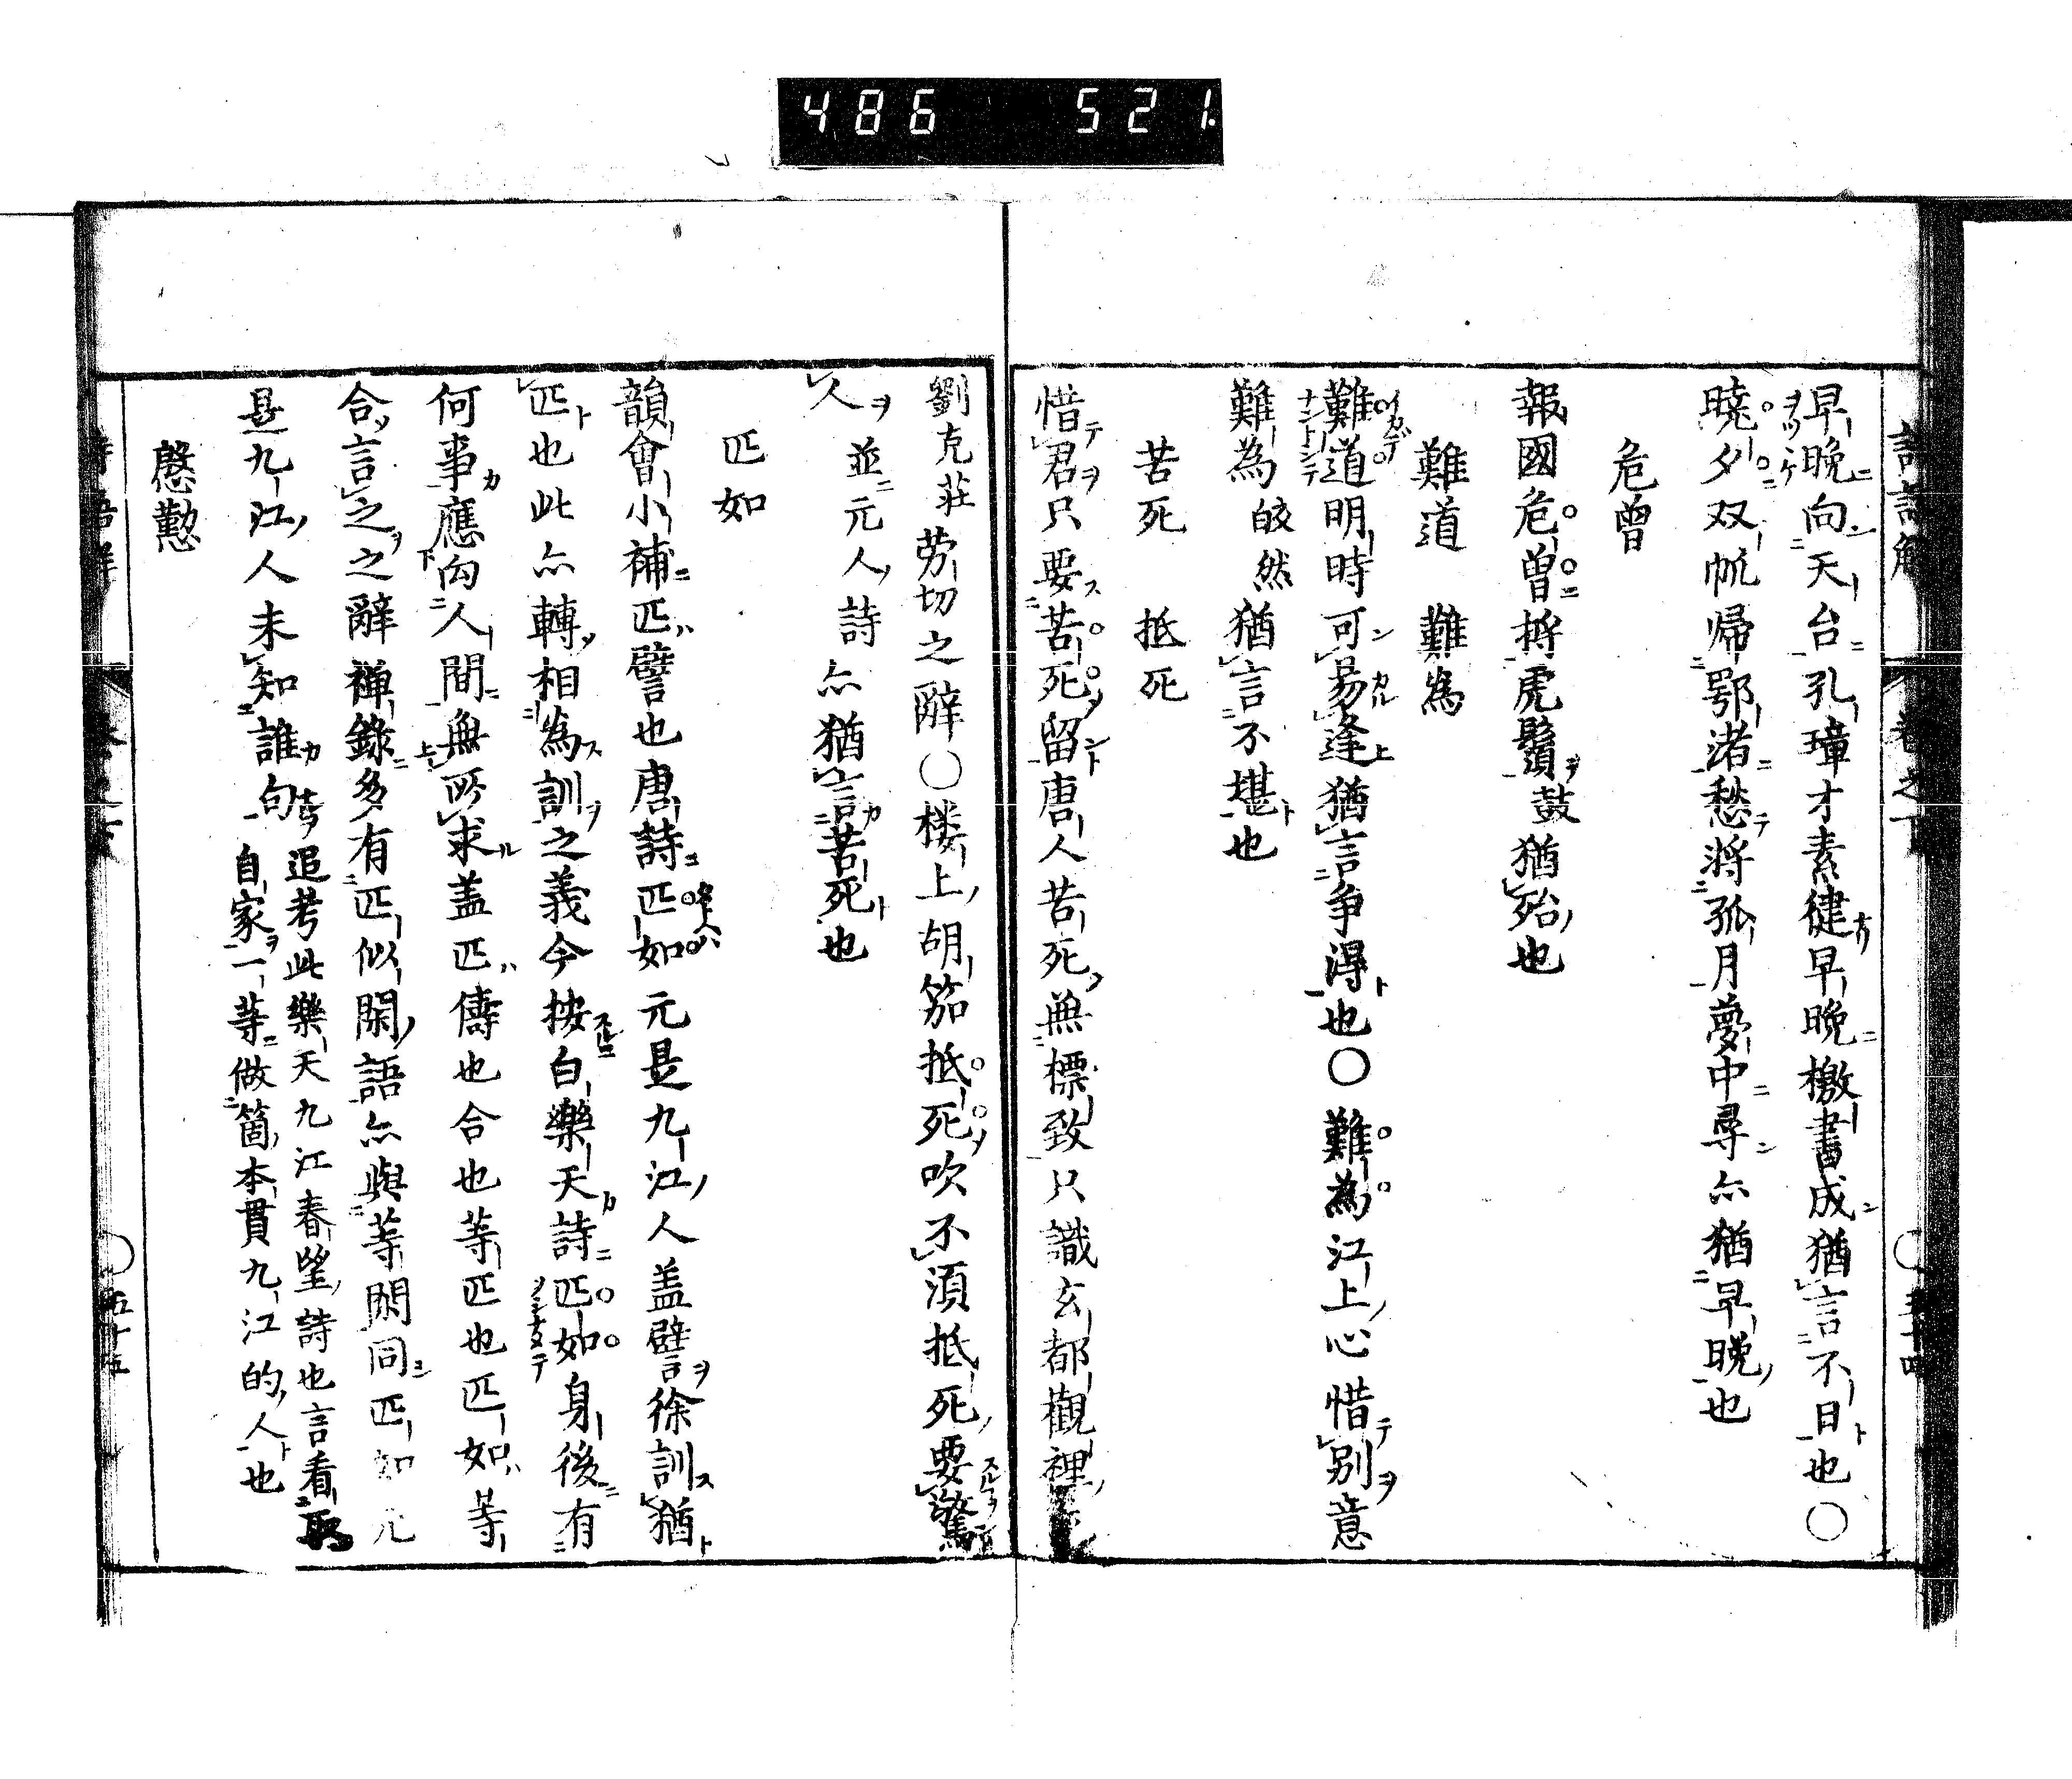 486 521
早晩向天台孔璋才素健早晩檄書成猶言不日也〇
曉夕双帆帰鄂渚愁将孤月夢中尋亦猶早晩也
危曾
報國危曾捋虎鬚鼓猶殆也
難道 難為
難道明時可易逢猶言争得也〇難為江上心惜別意
難為皎然猶言不堪也
苦死 抵死
惜君只要苦死留唐人苦死無標致只識玄都觀裡
劉克莊労切之辭〇楼上胡笳抵死吹不須抵死要驚
人並元人詩亦猶言苦死也
匹如
韻會小補匹譬也唐詩匹如元是九江人盖譬徐訓猶
匹也此亦轉相為訓之義今按白樂天詩匹如身後有
何事應向人間無所求盖匹儔也合也等匹也匹如等
合言之之辭禅錄多有匹似閑語亦與等閑同匹如元
是九江人未知誰句
追考此樂天九江春望詩也言看取
自家一等做箇本貫九江的人也
慇懃
卷之下
五十四
五十五